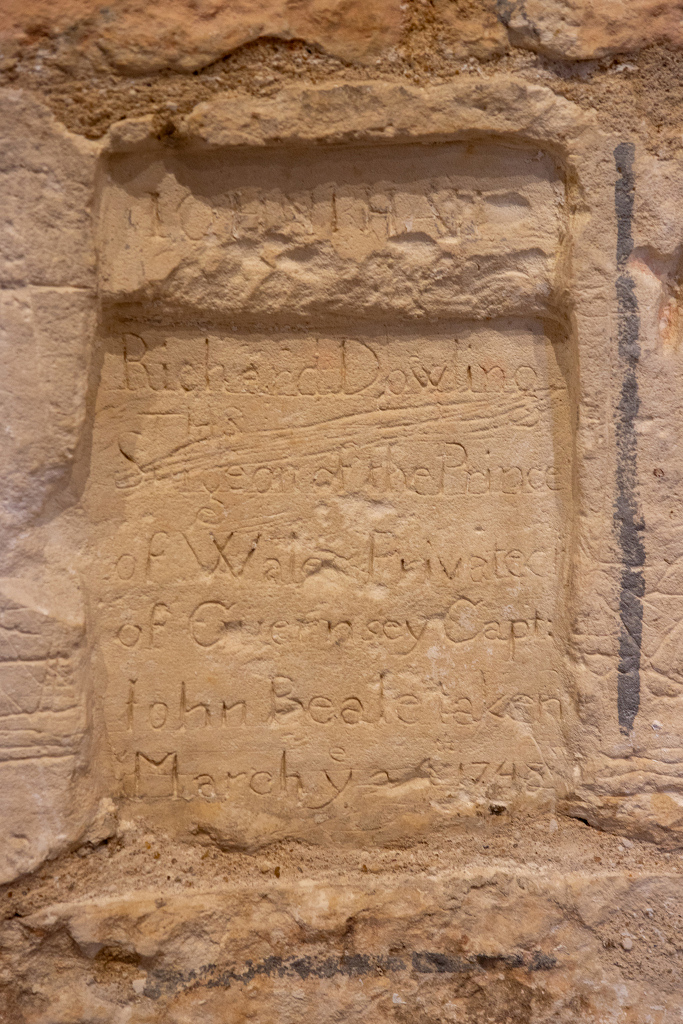 IOHN
Richard Dowling
Surgeon of the Prince
of Wales Privateer
of Guernsey Capt:
Iohn Beale taken
March ye 2 1748